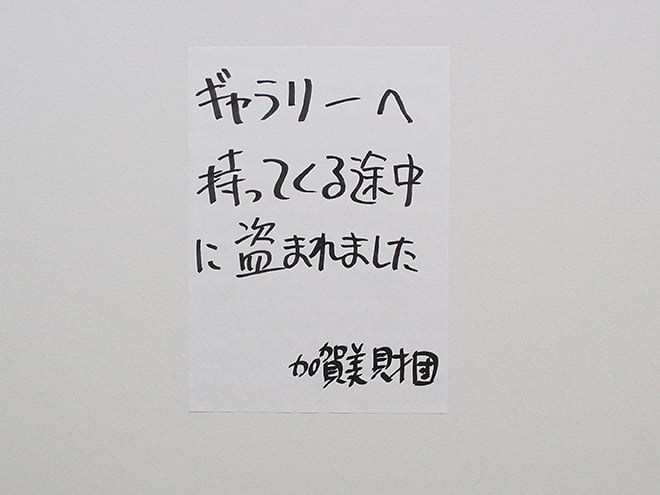 ギャラリーへ
持ってくる途中
に盗まれました
加賀美財団